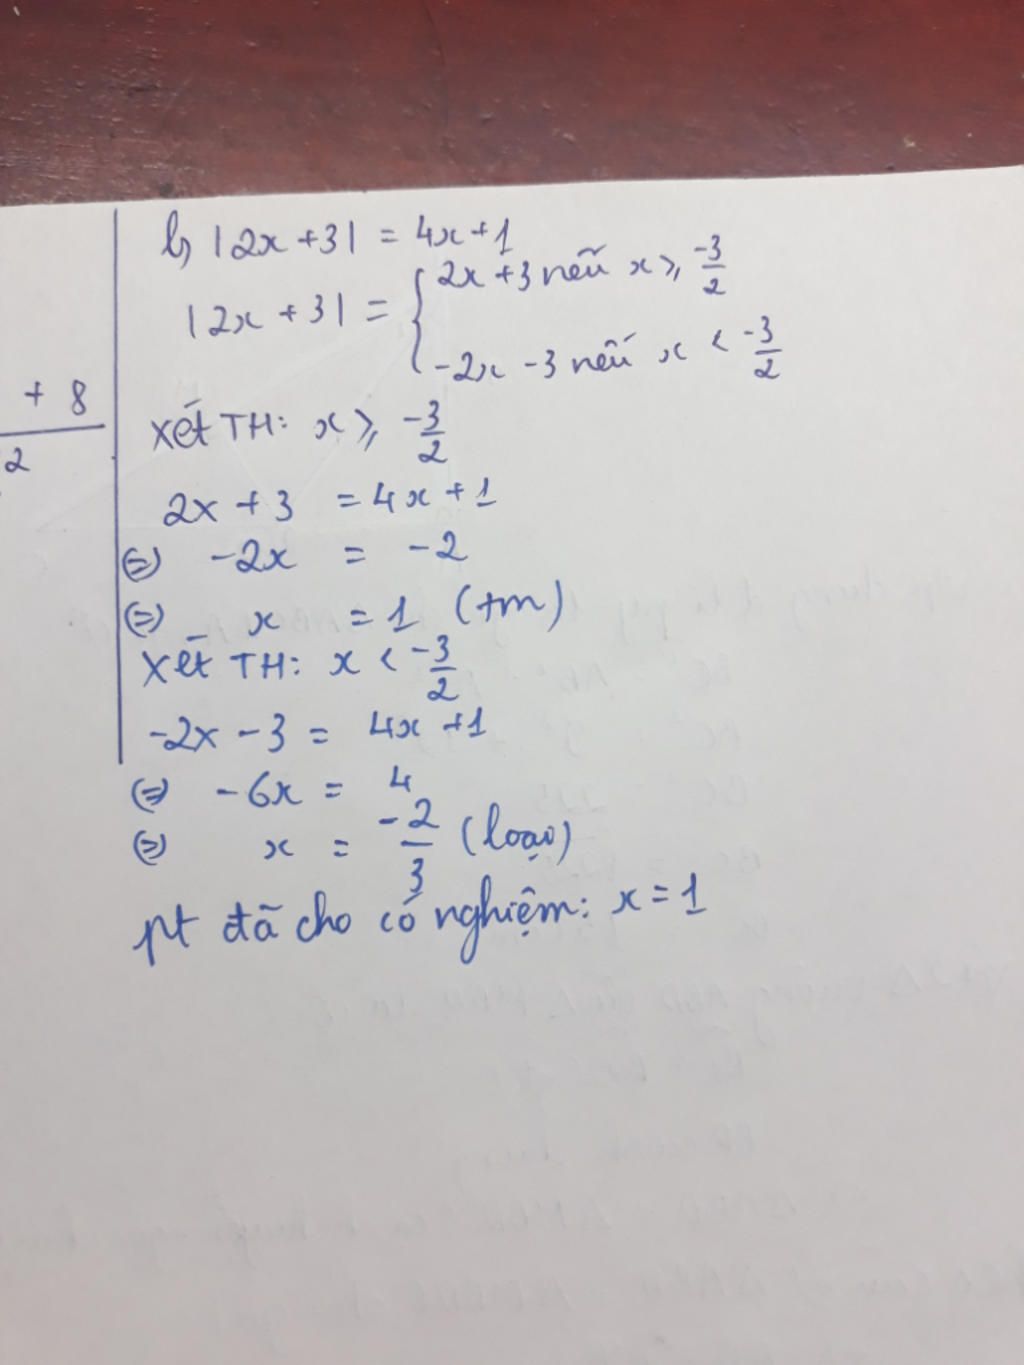 + 8
2
b, |2x + 3| = 4x + 1
|2x + 3| = { 2x + 3 nếu x ⩾ -3/2
-2x - 3 nếu x < -3/2
Xét TH: x ⩾ -3/2
2x + 3 = 4x + 1
(=) -2x = -2
(=) x = 1 (tm)
Xét TH: x < -3/2
-2x - 3 = 4x + 1
(=) -6x = 4
(=) x = -2/3 (loại)
pt đã cho có nghiệm: x = 1